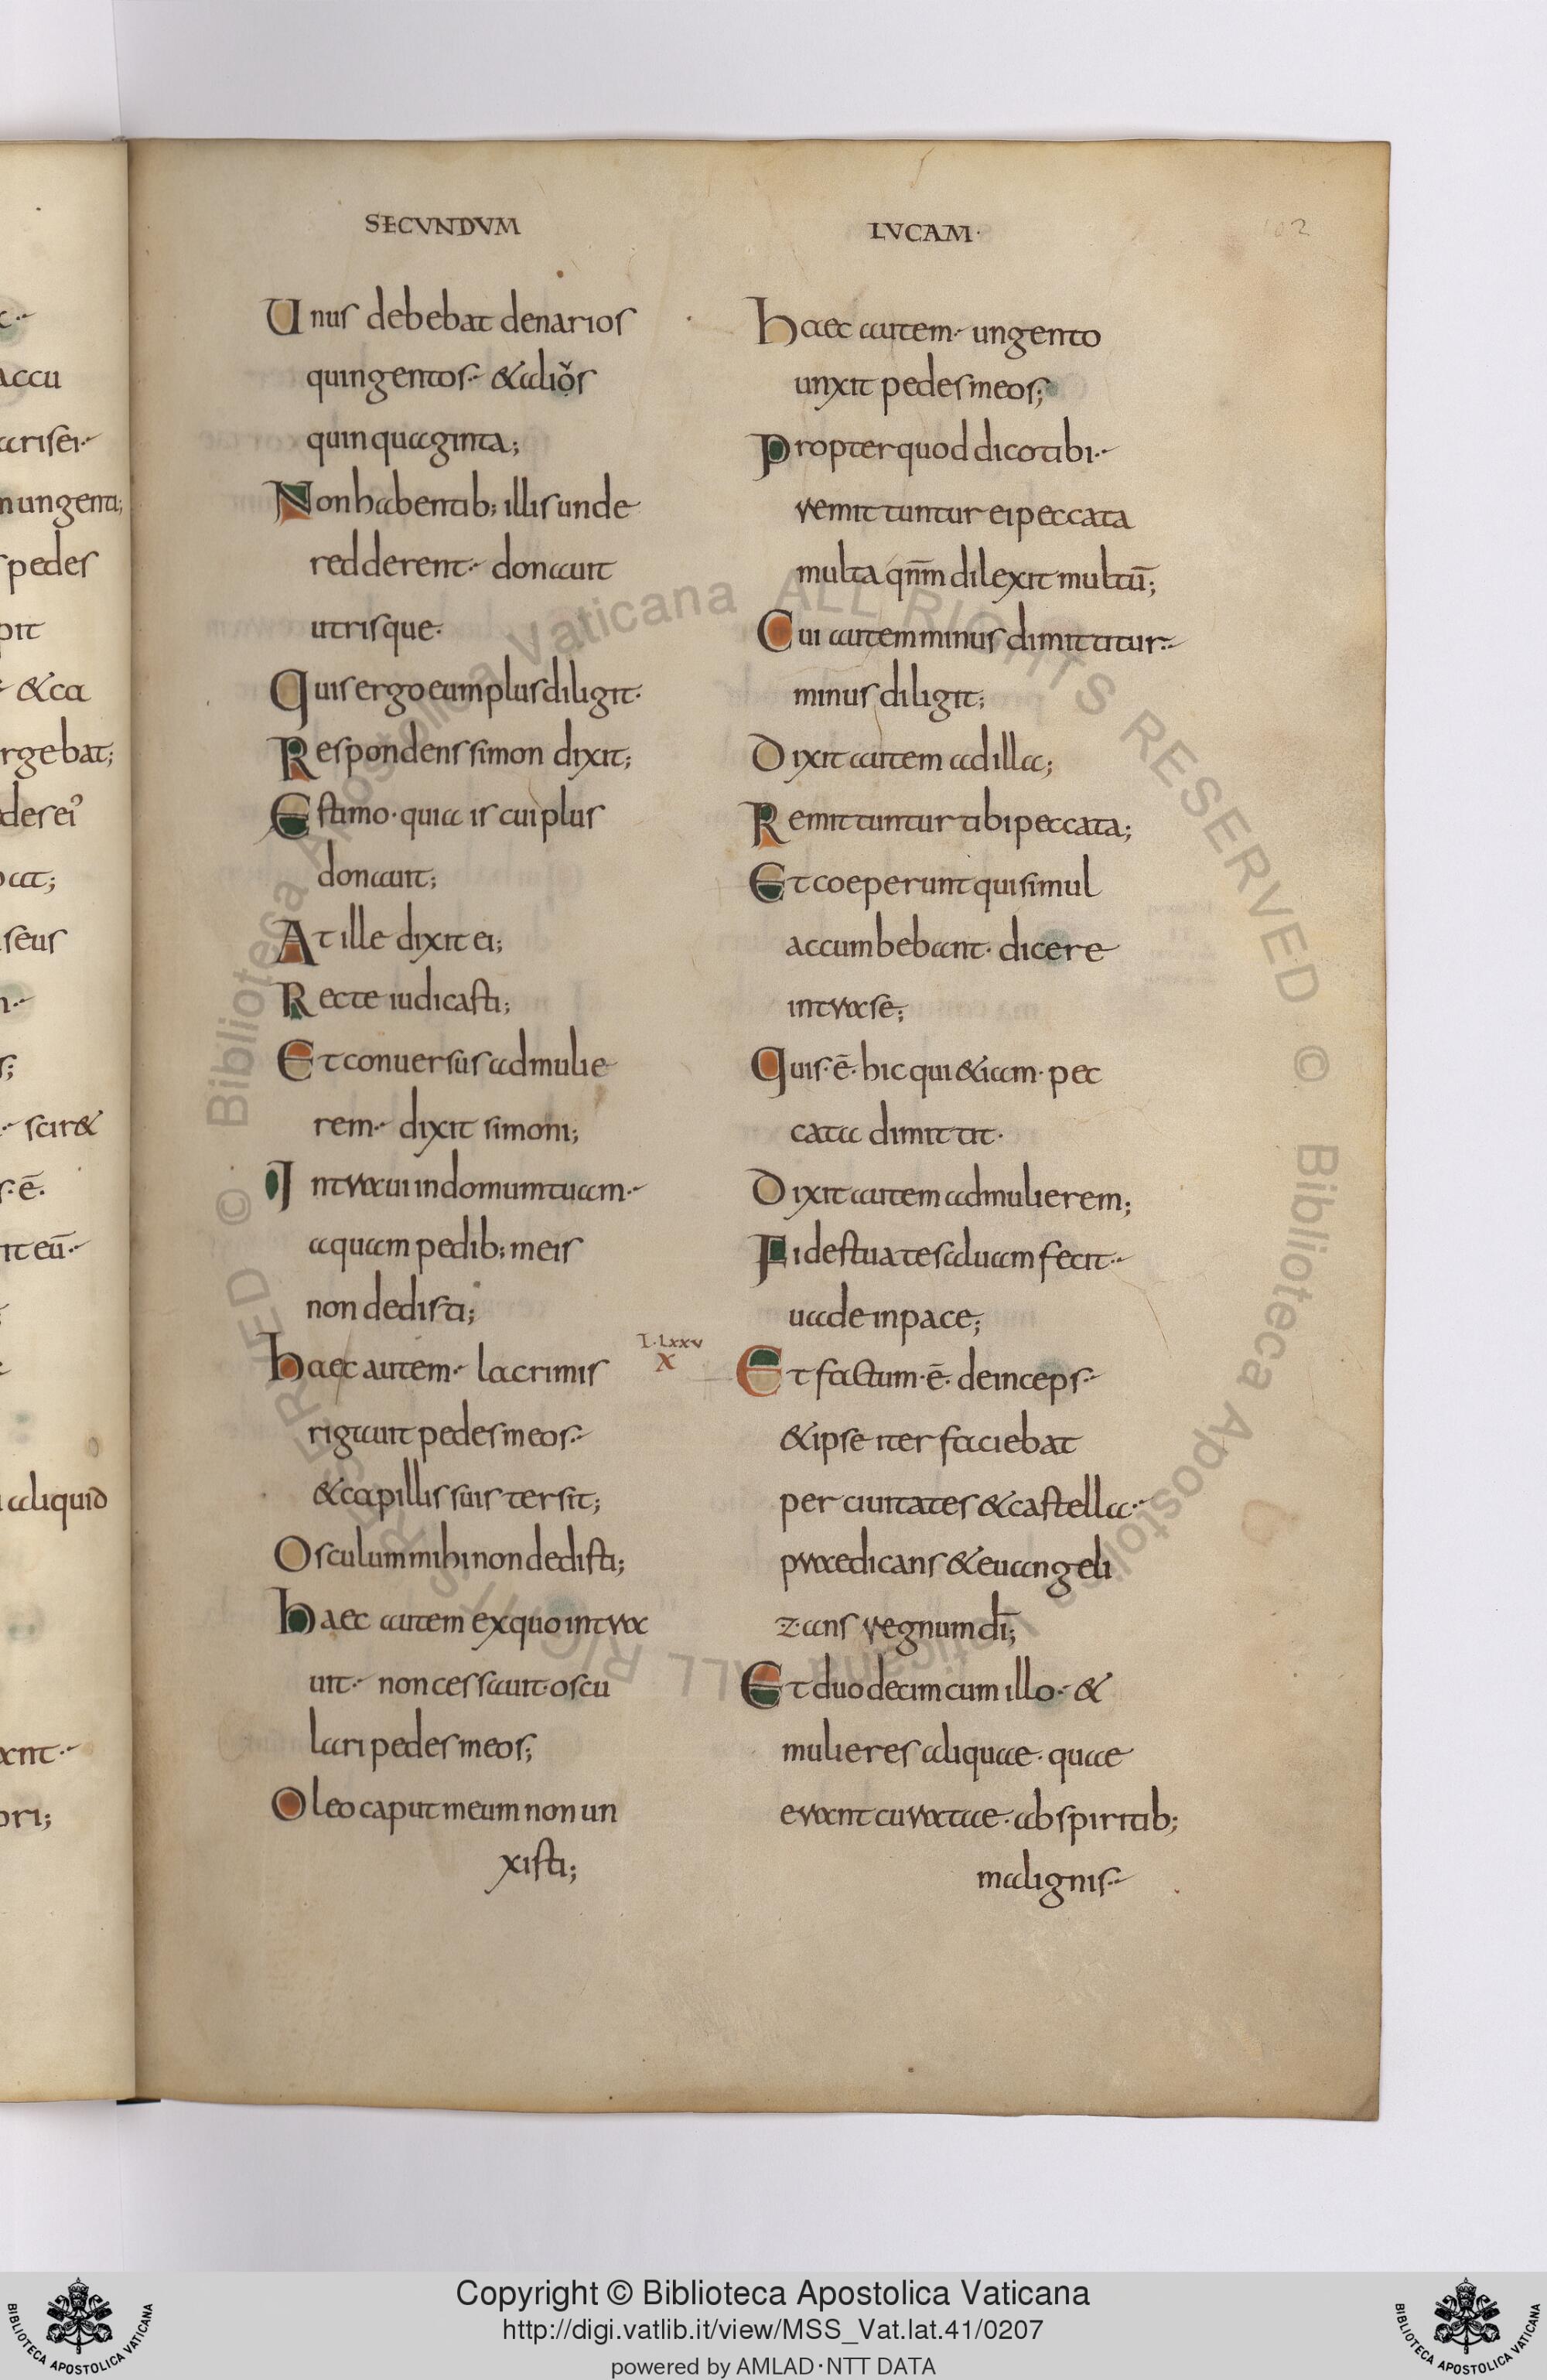 SECVNDVM
Unus debebat denarios
quingentos & aliǒs
quinquaginta;
Non habentib; illis unde
redderent donauit
utrisque.
Quis ergo eum plus diligit.
Respondens simon dixit;
Estimo. quia is cui plus
donauit;
At ille dixit ei;
Recte iudicasti;
Et conuersus ad mulie
rem dixit simoni;
Intraui in domum tuam
aquam pedib; meis
non dedisti;
haec autem lacrimis
rigauit pedes meos
& capillis suis tersit;
Osculum mihi non dedisti;
haec autem ex quo intra
uit non cessauit oscu
lari pedes meos;
Oleo caput meum non un
xisti;
LVCAM.
haec autem ungento
unxit pedes meos;
Propter quod dico tibi
remittuntur ei peccata
multa qnm̄ dilexit multū;
Cui autem minus dimittitur
minus diligit;
Dixit autem ad illa;
Remittuntur tibi peccata;
Et coeperunt qui simul
accumbebant. dicere
intra se;
Quis.ē. hic qui & iam pec
cata dimittit.
Dixit autem ad mulierem;
Fides tua te saluam fecit
uade in pace;
I.LXXV
X
Et factum.ē. deinceps
& ipse iter faciebat
per ciuitates & castella
praedicans & euangeli
zans regnum dī;
Et duodecim cum illo &
mulieres aliquae. quae
erant curatae. ab spiritib;
malignis
Copyright © Biblioteca Apostolica Vaticana
http://digi.vatlib.it/view/MSS_Vat.lat.41/0207
powered by AMLAD·NTT DATA